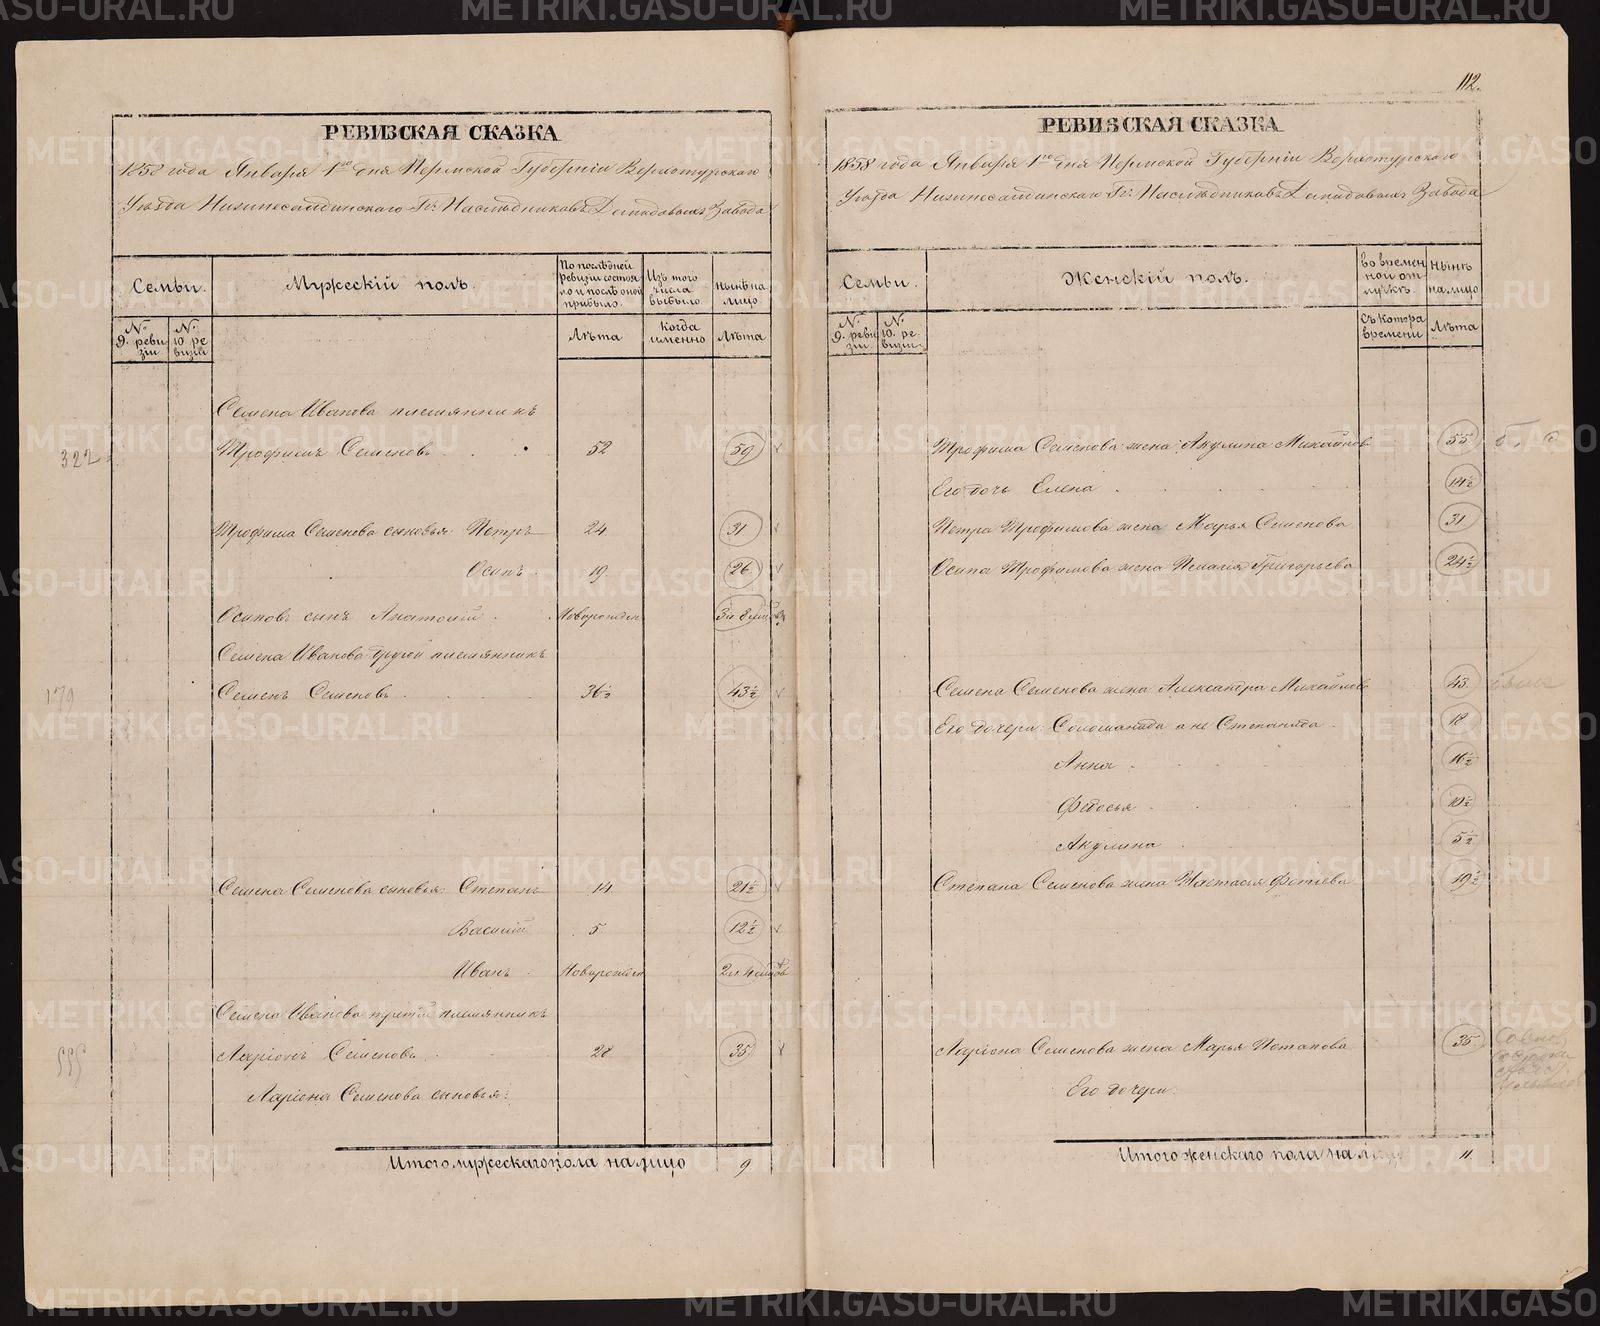 РЕВИЗСКАЯ СКАЗКА
1858 года Января 1го дня Пермской Губернiи Верхотурскаго
Уѣзда Нижнесалдинскаго Гг. Наслѣдниковъ Демидовыхъ Завода
Семьи.
Мужескiй полъ.
По послѣдней ревизiи состояло и послѣ оной прибыло.
Изъ того числа выбыло
нынѣ на лицо
№ 9. ревизiи
№ 10 ревизiи
Лѣта
когда именно
Лѣта
Семена Иванова племянникъ
322 Трофимъ Семеновъ 52 59
Трофима Семенова сыновья: Петръ 24 31
Осипъ 19 26
Осиповъ сынъ Анатолiй Новорожден
Семена Иванова другой племянникъ
179 Семенъ Семеновъ 36½ 43½
Семена Семенова сыновья: Степанъ 14 21½
Василiй 5 12½
Иванъ Новорожден
Семена Иванова третiй племянникъ
Ларiонъ Семеновъ 28 35
Ларiона Семенова сыновья:
Итого мужескаго пола на лицо 9
112.
РЕВИЗСКАЯ СКАЗКА
1858 года Января 1го дня Пермской Губернiи Верхотурскаго
Уѣзда Нижнесалдинскаго Гг. Наслѣдниковъ Демидовыхъ Завода
Семьи.
Женскiй полъ.
во временной отлучкѣ.
нынѣ на лицо
№ 9. ревизiи
№ 10. ревизiи.
Съ котора времени
Лѣта
Трофима Семенова жена Акулина Михайлов 55
Его дочь Елена 14½
Петра Трофимова жена Марья Семенова 31
Осипа Трофимова жена Пелагiя Григорьева 24½
Семена Семенова жена Александра Михайлов 43.
Его дочери: Соломанида а не Степанида 18
Анна 16½
Федосья 10½
Акулина 5½
Степана Семенова жена Настасья Фотiева 19½
Ларiона Семенова жена Марья Потапова 35.
Его дочери:
Итого женскаго пола на лицо 11
METRIKI.GASO-URAL.RU